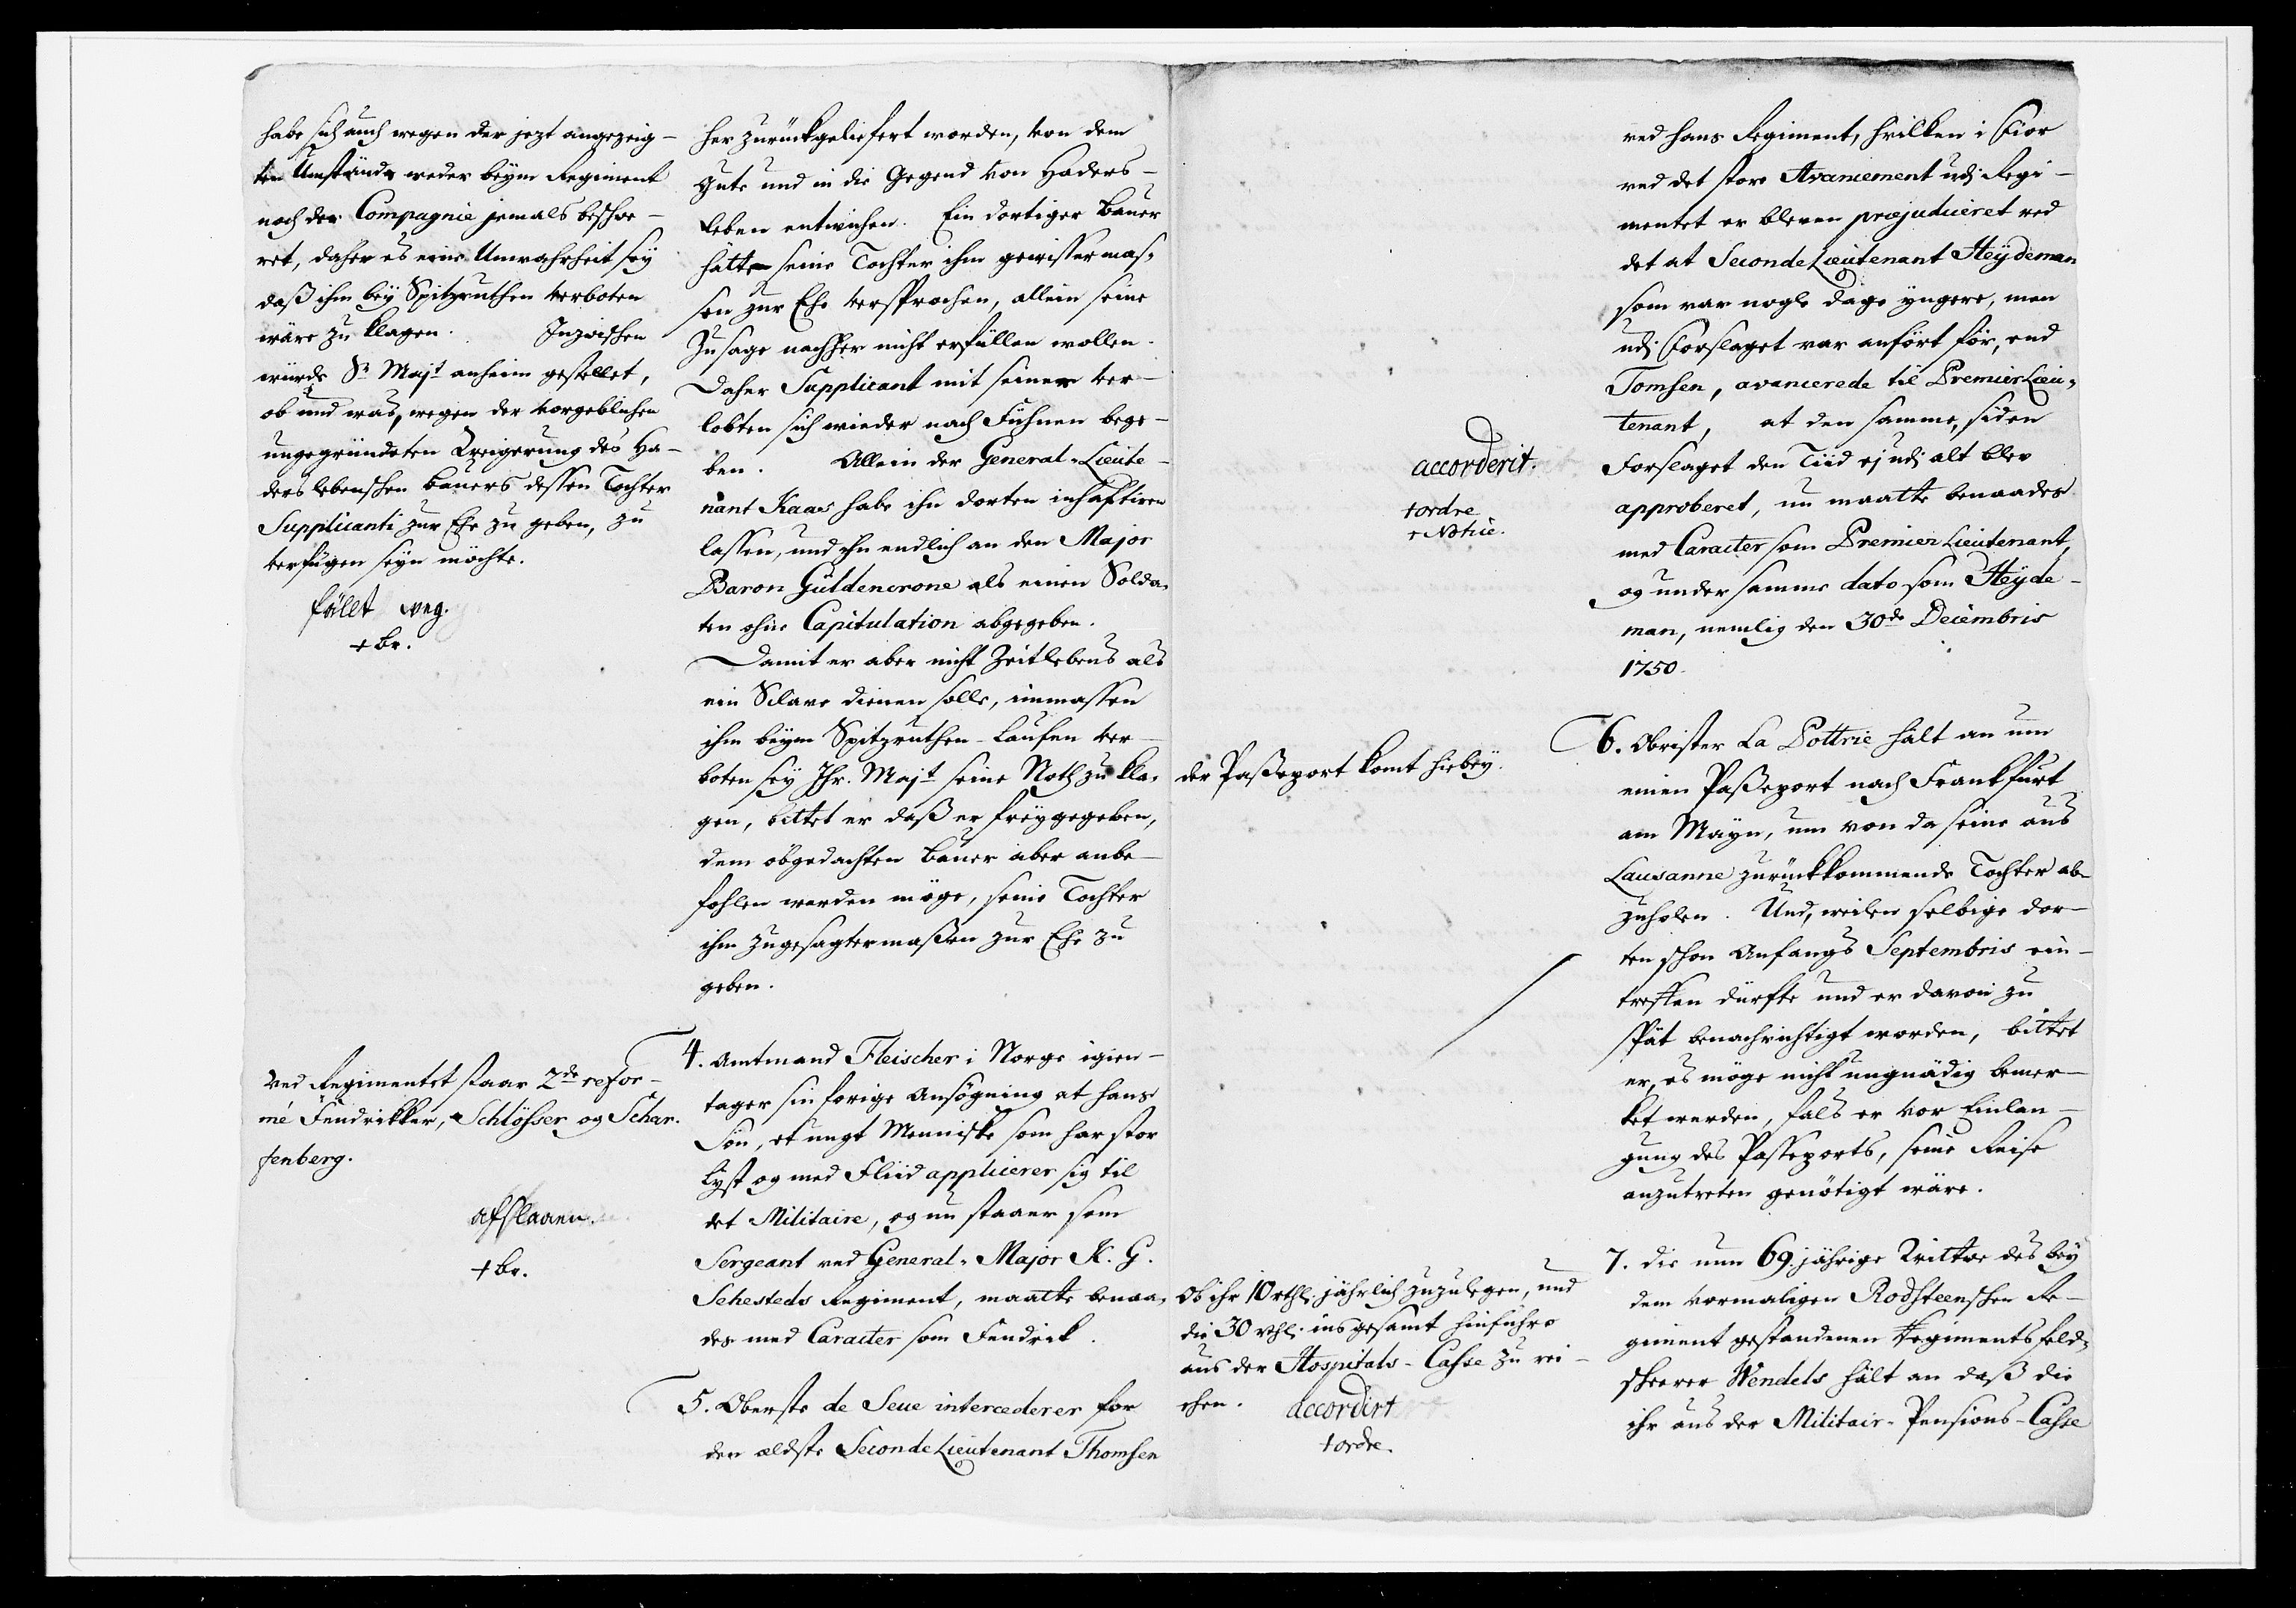 habe sich auch wegen der jezt angezeig-
ten Umstände weder beym Regiment
noch der Compagnie jemals beschwe-
ret, daher es eine Unwahrheit sey
daß ihm bey Spitzruthen verboten
wäre zu klagen. Inzwischen
würde Sr Majt anheim gestellet,
ob und was, wegen der vorgeblichen
ungegründeten Weigerung des Ha-
derslebenschen Bauers dessen Tochter
Supplicanti zur Ehe zu geben, zu
verfügen seyn möchte.
fällt weg.
+ br.
Ved Regimentet staar 2de refor-
mé Fendrikker, Schlösser og Schar-
fenberg.
afslaaen.
+ br.
her zurückgeliefert worden, von dem
Gute und in die Gegend von Haders-
leben entwichen. Ein dortiger Bauer
hätte seine Tochter ihm gewissermas-
sen zur Ehe versprochen, allein seine
Zusage nachher nicht erfüllen wollen.
Daher Supplicant mit seiner ver-
lobten sich wieder nach Fühnen bege-
ben. Allein der General-Lieute-
nant Kaas habe ihn dorten inhaftiren
lassen, und ihn endlich an den Major
Baron Güldencrone als einen Solda-
ten ohne Capitulation abgegeben.
Damit er aber nicht Zeitlebens als
ein Sclave dienen solle, immassen
ihm beym Spitzruthen-Laufen ver-
boten sey Ihr. Majt seine Noth zu kla-
gen, bittet er daß er freygegeben,
dem obgedachten Bauer aber anbe-
fohlen werden möge, seine Tochter
ihm zugesagtermassen zur Ehe zu
geben.
4. Amtmand Fleischer i Norge igien-
tager sin forige Ansögning at hans
Sön, et ungt Menniske som har stor
Lyst og med Fliid applicerer sig til
det Militaire, og nu staaer som
Sergeant ved General-Major K. G.
Sehesteds Regiment, maatte benaa-
des med Caracter som Fendrik.
5. Oberste de Seue intercederer for
den ældste Seconde Lieutenant Thomsen
accorderit.
+ ordre
+ Notice.
der Paßeport komt hiebey.
Ob ihr 10 rthl. jährlich zuzulegen, und
die 30 rthl. insgesamt hinführo
aus der Hospitals-Casse zu rei-
chen. accordirt
+ ordre.
ved hans Regiment, hvilken i Fior
ved det store Avancement udi Regi-
mentet er bleven præjudiceret ved
det at Seconde Lieutenant Heydeman
som var nogle Dage yngere, men
udi Forslaget var anfört för, end
Tomsen, avancerede til Premier Lieu-
tenant, at den samme, siden
Forslaget den Tiid ej udi alt blev
approberet, nu maatte benaades
med Caracter som Premier Lieutenant,
og under samme dato som Heyde-
man, nemlig den 30de Decembris
1750.
6. Obrister La Pottrie hält an um
einen Paßeport nach Frankfurt
am Mayn, um von da seine aus
Lausanne zurückkommende Tochter ab-
zuholen. Und, weilen selbige dor-
ten schon Anfangs Septembris ein-
treffen dürfte und er davon zu
spät benachrichtigt worden, bittet
er, es möge nicht ungnädig bemer-
ket werden, fals er vor Einlan-
gung des Passeports, seine Reise
anzutreten genötigt wäre.
7. die nun 69. jährige Wittwe des bey
dem vormaligen Rodsteenschen Re-
giment gestandenen Regimentsfeld-
scheerer Wendels hält an daß die
ihr aus der Militair-Pensions-Casse